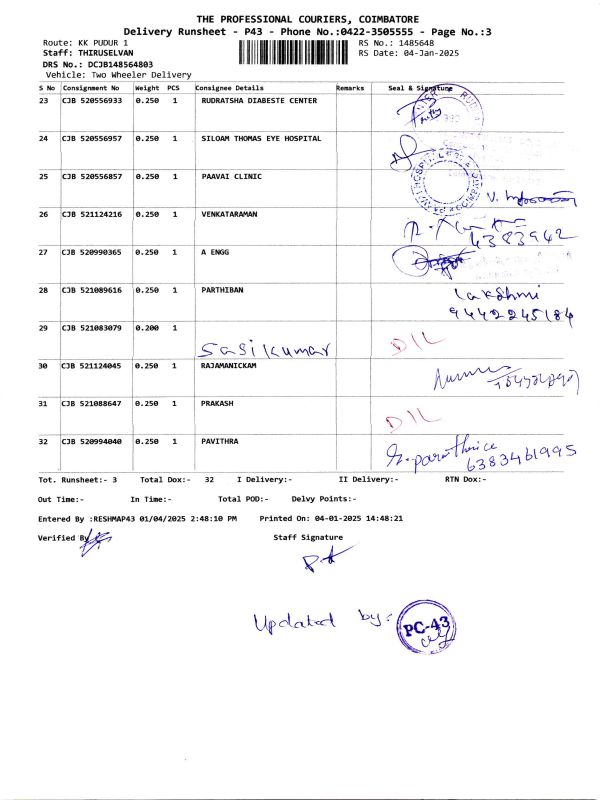 THE PROFESSIONAL COURIERS, COIMBATORE
Delivery Runsheet - P43 - Phone No.:0422-3505555 - Page No.:3
Route: KK PUDUR 1 RS No.: 1485648
Staff: THIRUSELVAN RS Date: 04-Jan-2025
DRS No.: DCJB148564803
Vehicle: Two Wheeler Delivery
S No Consignment No Weight PCS Consignee Details Remarks Seal & Signature
23 CJB 520556933 0.250 1 RUDRATSHA DIABESTE CENTER
24 CJB 520556957 0.250 1 SILOAM THOMAS EYE HOSPITAL
25 CJB 520556857 0.250 1 PAAVAI CLINIC
26 CJB 521124216 0.250 1 VENKATARAMAN
6383942
27 CJB 520990365 0.250 1 A ENGG
28 CJB 521089616 0.250 1 PARTHIBAN Lakshmi
9442245184
29 CJB 521083079 0.200 1 Sasikumar DIL
30 CJB 521124045 0.250 1 RAJAMANICKAM
31 CJB 521088647 0.250 1 PRAKASH DIL
32 CJB 520994040 0.250 1 PAVITHRA
6383461995
Tot. Runsheet:- 3 Total Dox:- 32 I Delivery:- II Delivery:- RTN Dox:-
Out Time:- In Time:- Total POD:- Delvy Points:-
Entered By :RESHMAP43 01/04/2025 2:48:10 PM Printed On: 04-01-2025 14:48:21
Verified By Staff Signature
Updated by: PC-43